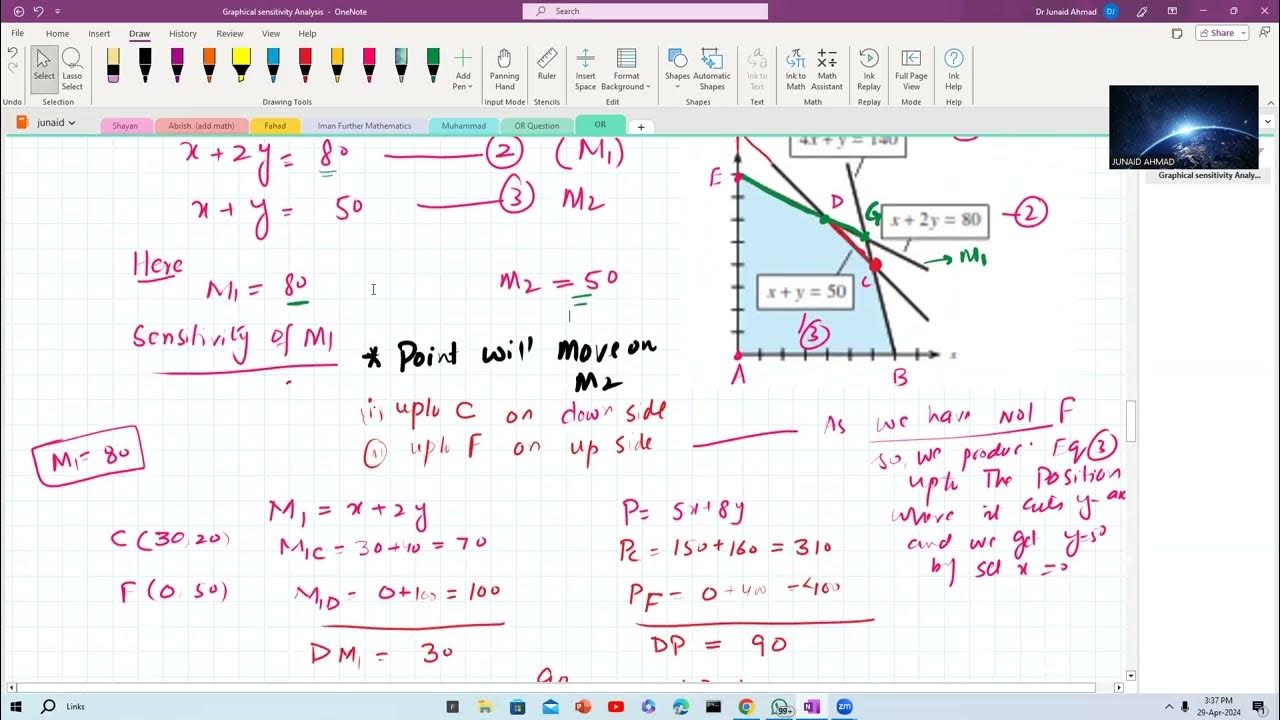 Graphical sensitivity Analysis - OneNote
Search
Dr Junaid Ahmad
DJ
File Home Insert Draw History Review View Help
Share
Select
Lasso Select
Add Pen
Panning Hand
Ruler
Insert Space
Format Background
Shapes
Automatic Shapes
Ink to Text
Ink to Math
Math Assistant
Ink Replay
Full Page View
Ink Help
Undo
Selection
Drawing Tools
Input Mode
Stencils
Edit
Shapes
Text
Math
Replay
Mode
Help
junaid
Shayan
Abrish. (add math)
Fahad
Iman Further Mathematics
Muhammad
OR Question
OR
JUNAID AHMAD
Graphical sensitivity Analy...
x + 2y = 80 — ② (M1)
x + y = 50 — ③ M2
Here
M1 = 80
M2 = 50
Sensitivity of M1
* Point will move on
M2
(i) upto C on down side
(ii) upto F on up side
4x + y = 140
E
D
G
x + 2y = 80
②
M1
C
x + y = 50
③
x
A
B
As we have not F
so, we produce Eq ③
upto The Position
where it cuts y-ax
and we get y=50
by set x=0
M1 = 80
M1 = x + 2y
P = 5x + 8y
C (30, 20)
M1C = 30 + 40 = 70
PC = 150 + 160 = 310
F (0, 50)
M1D = 0 + 100 = 100
PF = 0 + 400 = 400
DM1 = 30
DP = 90
90
Links
99+
3:37 PM
29-Apr-2024